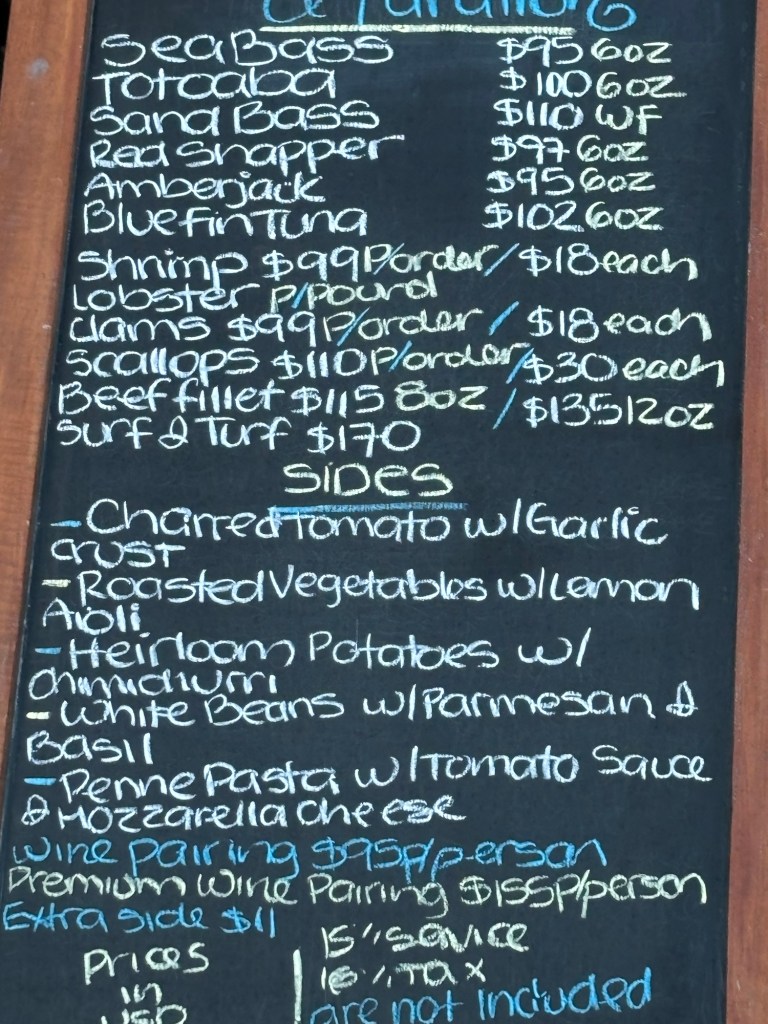 Sea Bass $95 6oz
Totoaba $100 6oz
Sand Bass $110 WF
Red Snapper $97 6oz
Amberjack $95 6oz
Bluefin Tuna $102 6oz
Shrimp $99 P/order / $18 each
Lobster P/Pound
Clams $99 P/order / $18 each
Scallops $110 P/order / $30 each
Beef fillet $115 8oz / $135 12oz
Surf & Turf $170
SIDES
- Charred Tomato w/Garlic
crust
- Roasted Vegetables w/Lemon
Aioli
- Heirloom Potatoes w/
Chimichurri
- White Beans w/Parmesan &
Basil
- Penne Pasta w/Tomato Sauce
& Mozzarella cheese
Wine Pairing $95 p/person
Premium Wine Pairing $155 P/person
Extra side $11
Prices
in
USD
15% Service
16% Tax
are not included